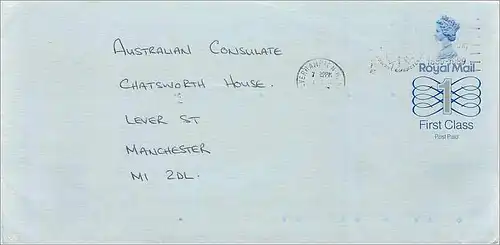 AUSTRALIAN CONSULATE
CHATSWORTH HOUSE.
LEVER ST
MANCHESTER
M1 2DL.
Royal Mail
1
First Class
Post Paid